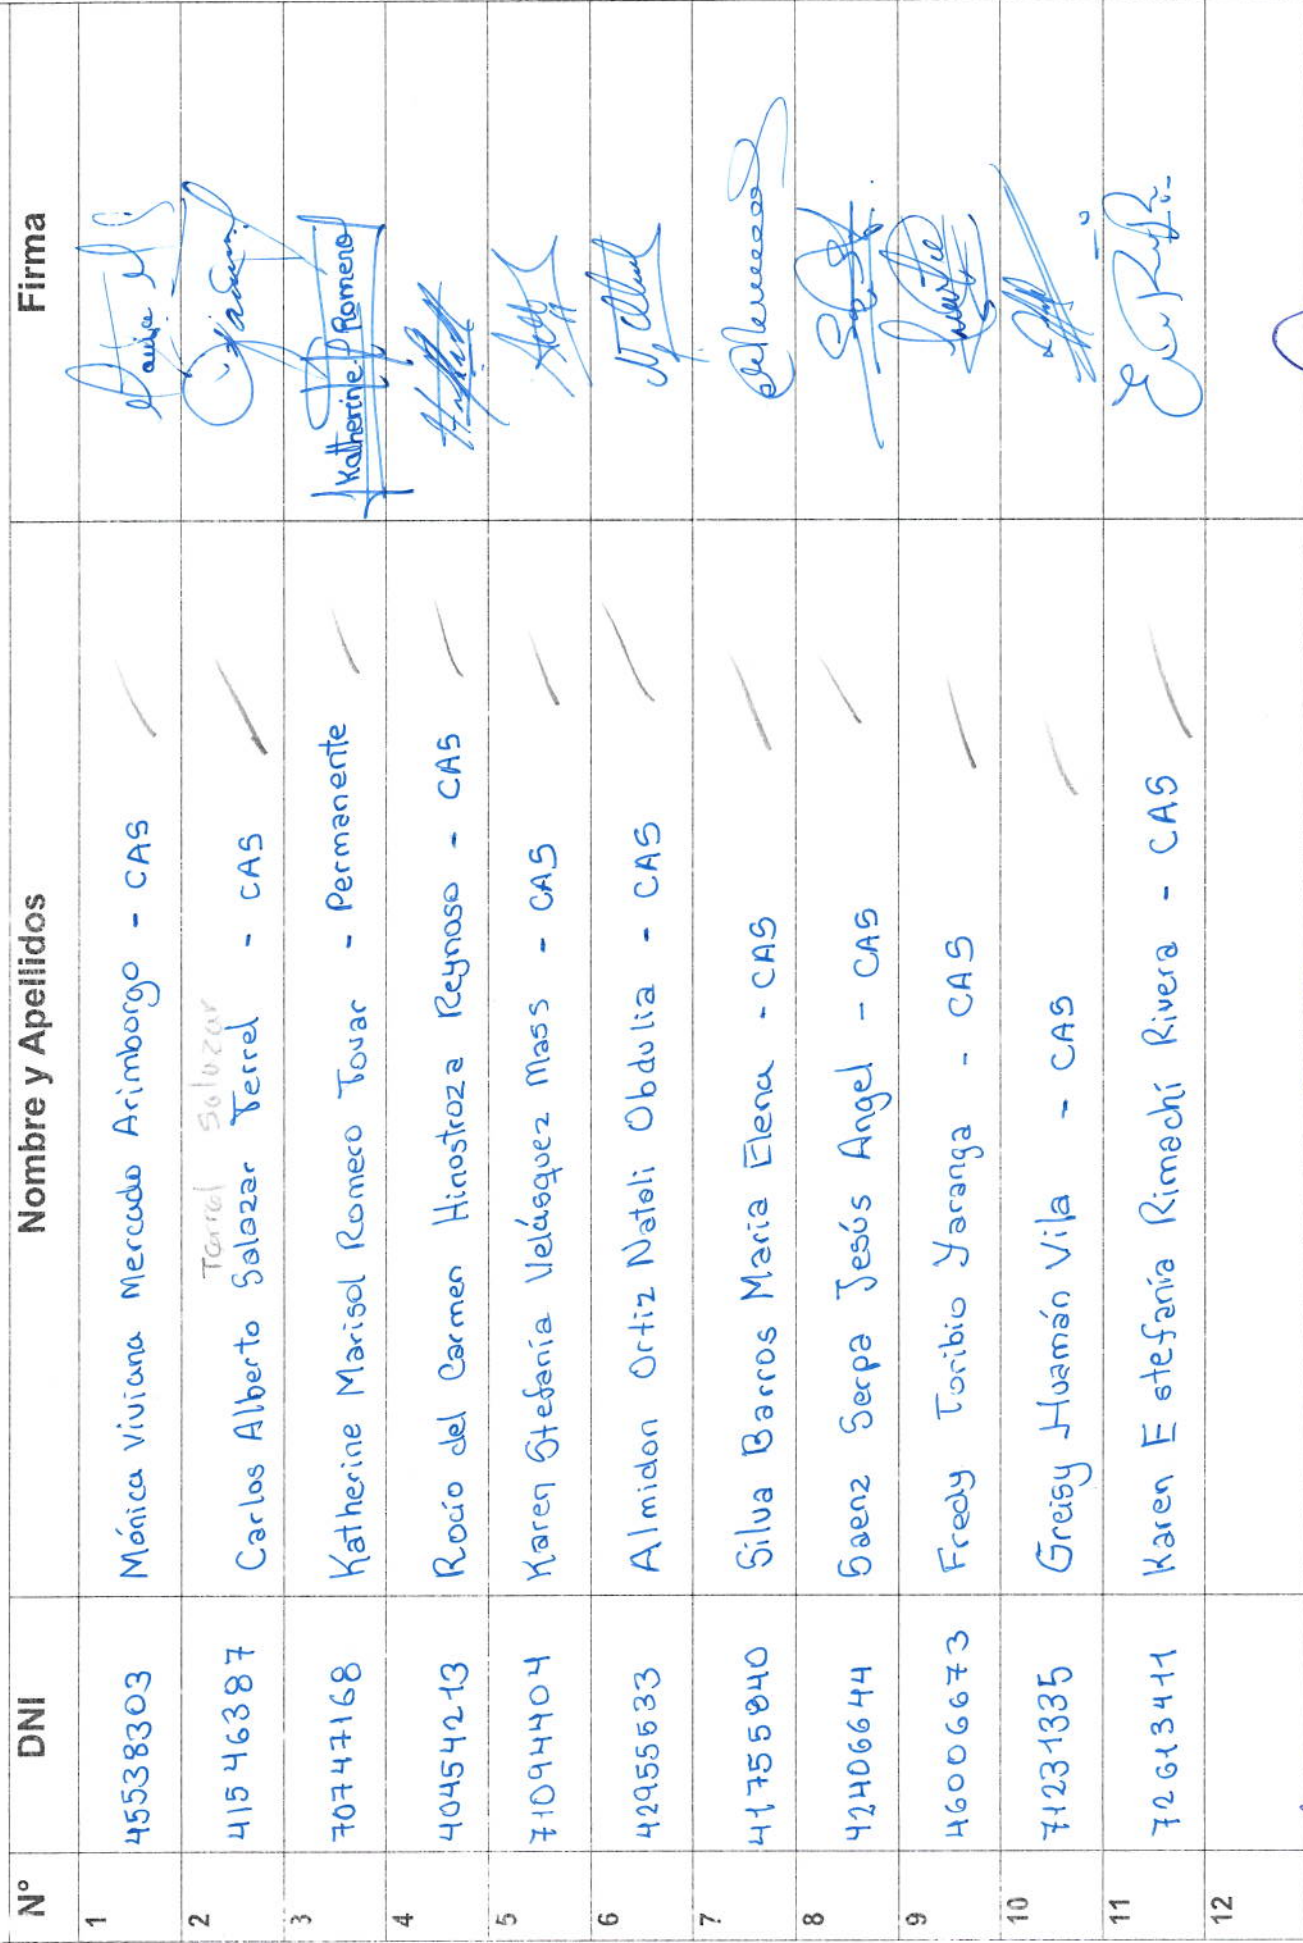 N° DNI Nombre y Apellidos Firma
1 45538303 Mónica Viviana Mercado Arimborgo - CAS
Terrel Salazar
2 41546387 Carlos Alberto Salazar Terrel - CAS
3 70747168 Katherine Marisol Romero Tovar - Permanente Katherine Romero
4 40454213 Rocío del Carmen Hinostroza Reynoso - CAS
5 71094404 Karen Stefanía Velásquez Mass - CAS
6 42955533 Almidon Ortiz Natali Obdulia - CAS
7 41755840 Silva Barros Maria Elena - CAS
8 42406644 Saenz Serpa Jesús Angel - CAS
9 46006673 Fredy Toribio Yaranga - CAS
10 71231335 Greisy Huamán Vila - CAS
11 72613411 Karen Estefanía Rimachi Rivera - CAS
12